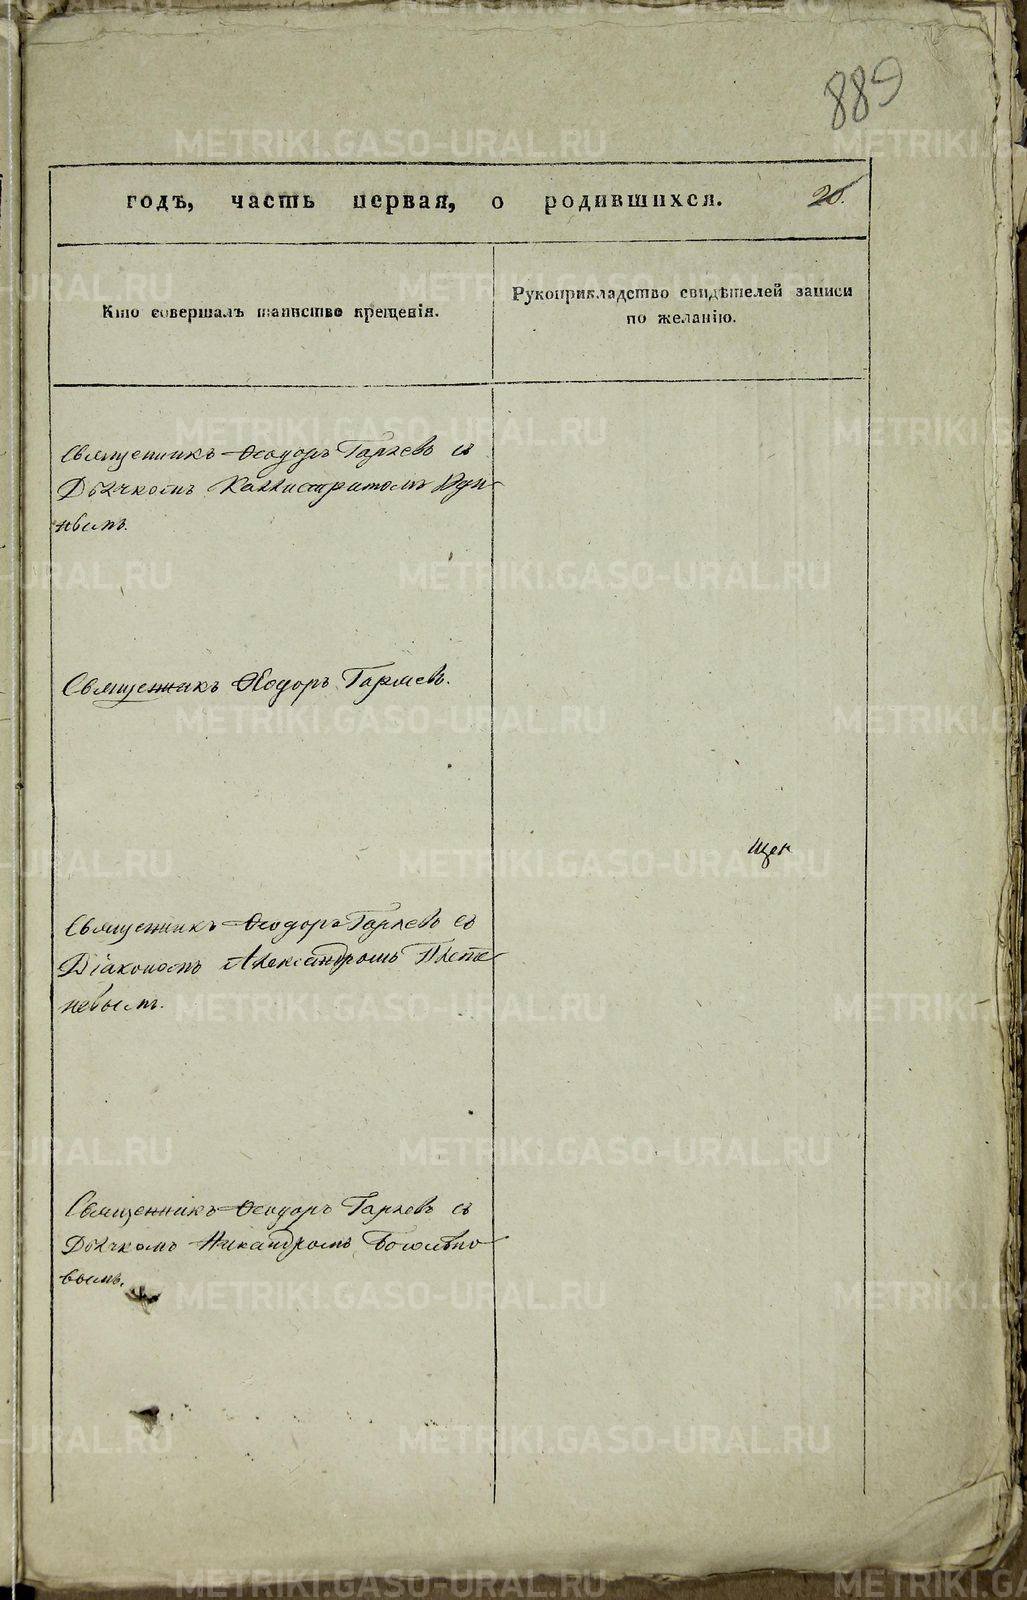 889
годъ, часть первая, о родившихся. 20.
Кто совершалъ таинство крещенія.
Рукоприкладство свидѣтелей записи
по желанію.
Священникъ Ѳеодоръ Гаряевъ съ
Дьячкомъ Каллистратомъ
Священникъ Ѳеодоръ Гаряевъ.
Священникъ Ѳеодоръ Гаряевъ съ
Діакономъ Александромъ Плете
невымъ.
Священникъ Ѳеодоръ Гаряевъ съ
Дьячкомъ Никандромъ Боголѣпо
вымъ.
METRIKI.GASO-URAL.RU